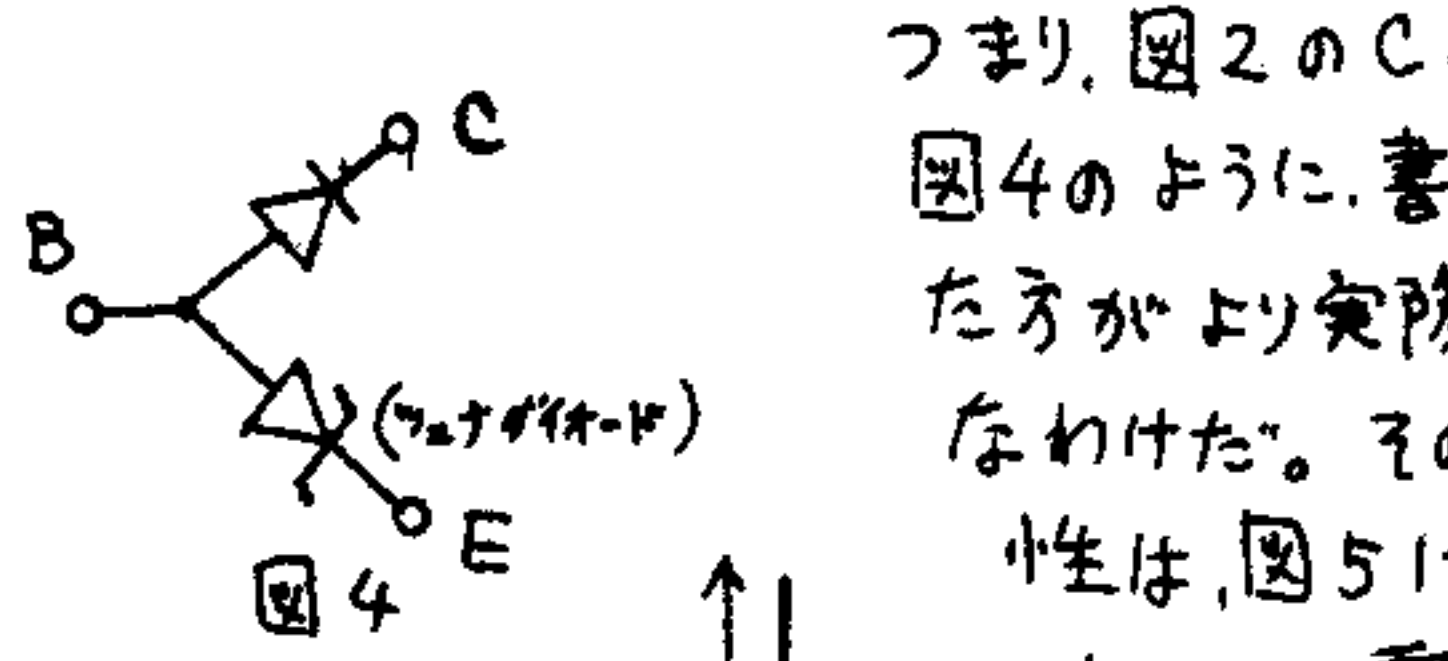 C
B
(ツェナダイオード)
E
図4
つまり、図2のC
図4のように、書
た方がより実際
なわけだ。その
性は、図5に